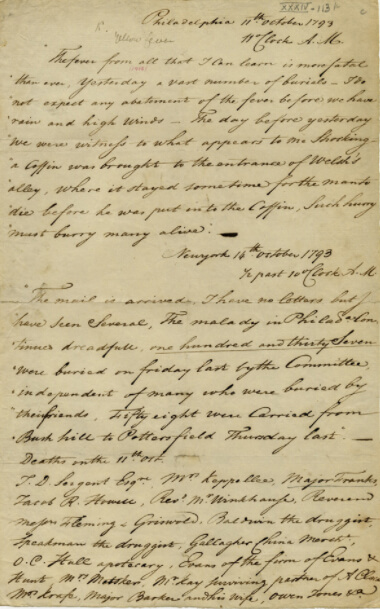 XXXIV-113
Yellow fever
Philadelphia 11th October 1793
11 oClock A.M.
"The fever from all that I can learn is more fatal
"than ever, Yesterday a vast number of burials - I do
"not expect any abatement of the fever before we have
"rain and high winds - The day before yesterday
"we were witness to what appears to me Shocking-
"a Coffin was brought to the entrance of Welds's
"alley, where it stayed some time for the man to
"die before he was put into the Coffin, Such hurry
"must burry many alive.
Newyork 14th October 1793
½ past 10 oClock A.M
"The mail is arrived, I have no letters but
"have seen Several, The malady in Philada Con
"tinues dreadfull, one hundred and thirty Seven
"were buried on friday last by the Committee,
"independent of many who were buried by
"their friends, fifty eight were Carried from
"Bush hill to Pottersfield Thursday last" -
Deaths on the 11th Oct.
J. D. Sergent Esqr. Mrs Keppellee, Major Franks,
Jacob R. Howell, Revd. Mr Winkhause, Reverend
major Fleming & Griswold, Baldwin the druggist,
Speakman the druggist, Gallagher China Mercht.,
O.C. Hall apotecary, Evans of the firm of Evans &
Hunt, Mrs Mettcker, McKay surviving partner of A Clow
Mrs Krafs, Major Barker and his wife, Owen Jones &a.